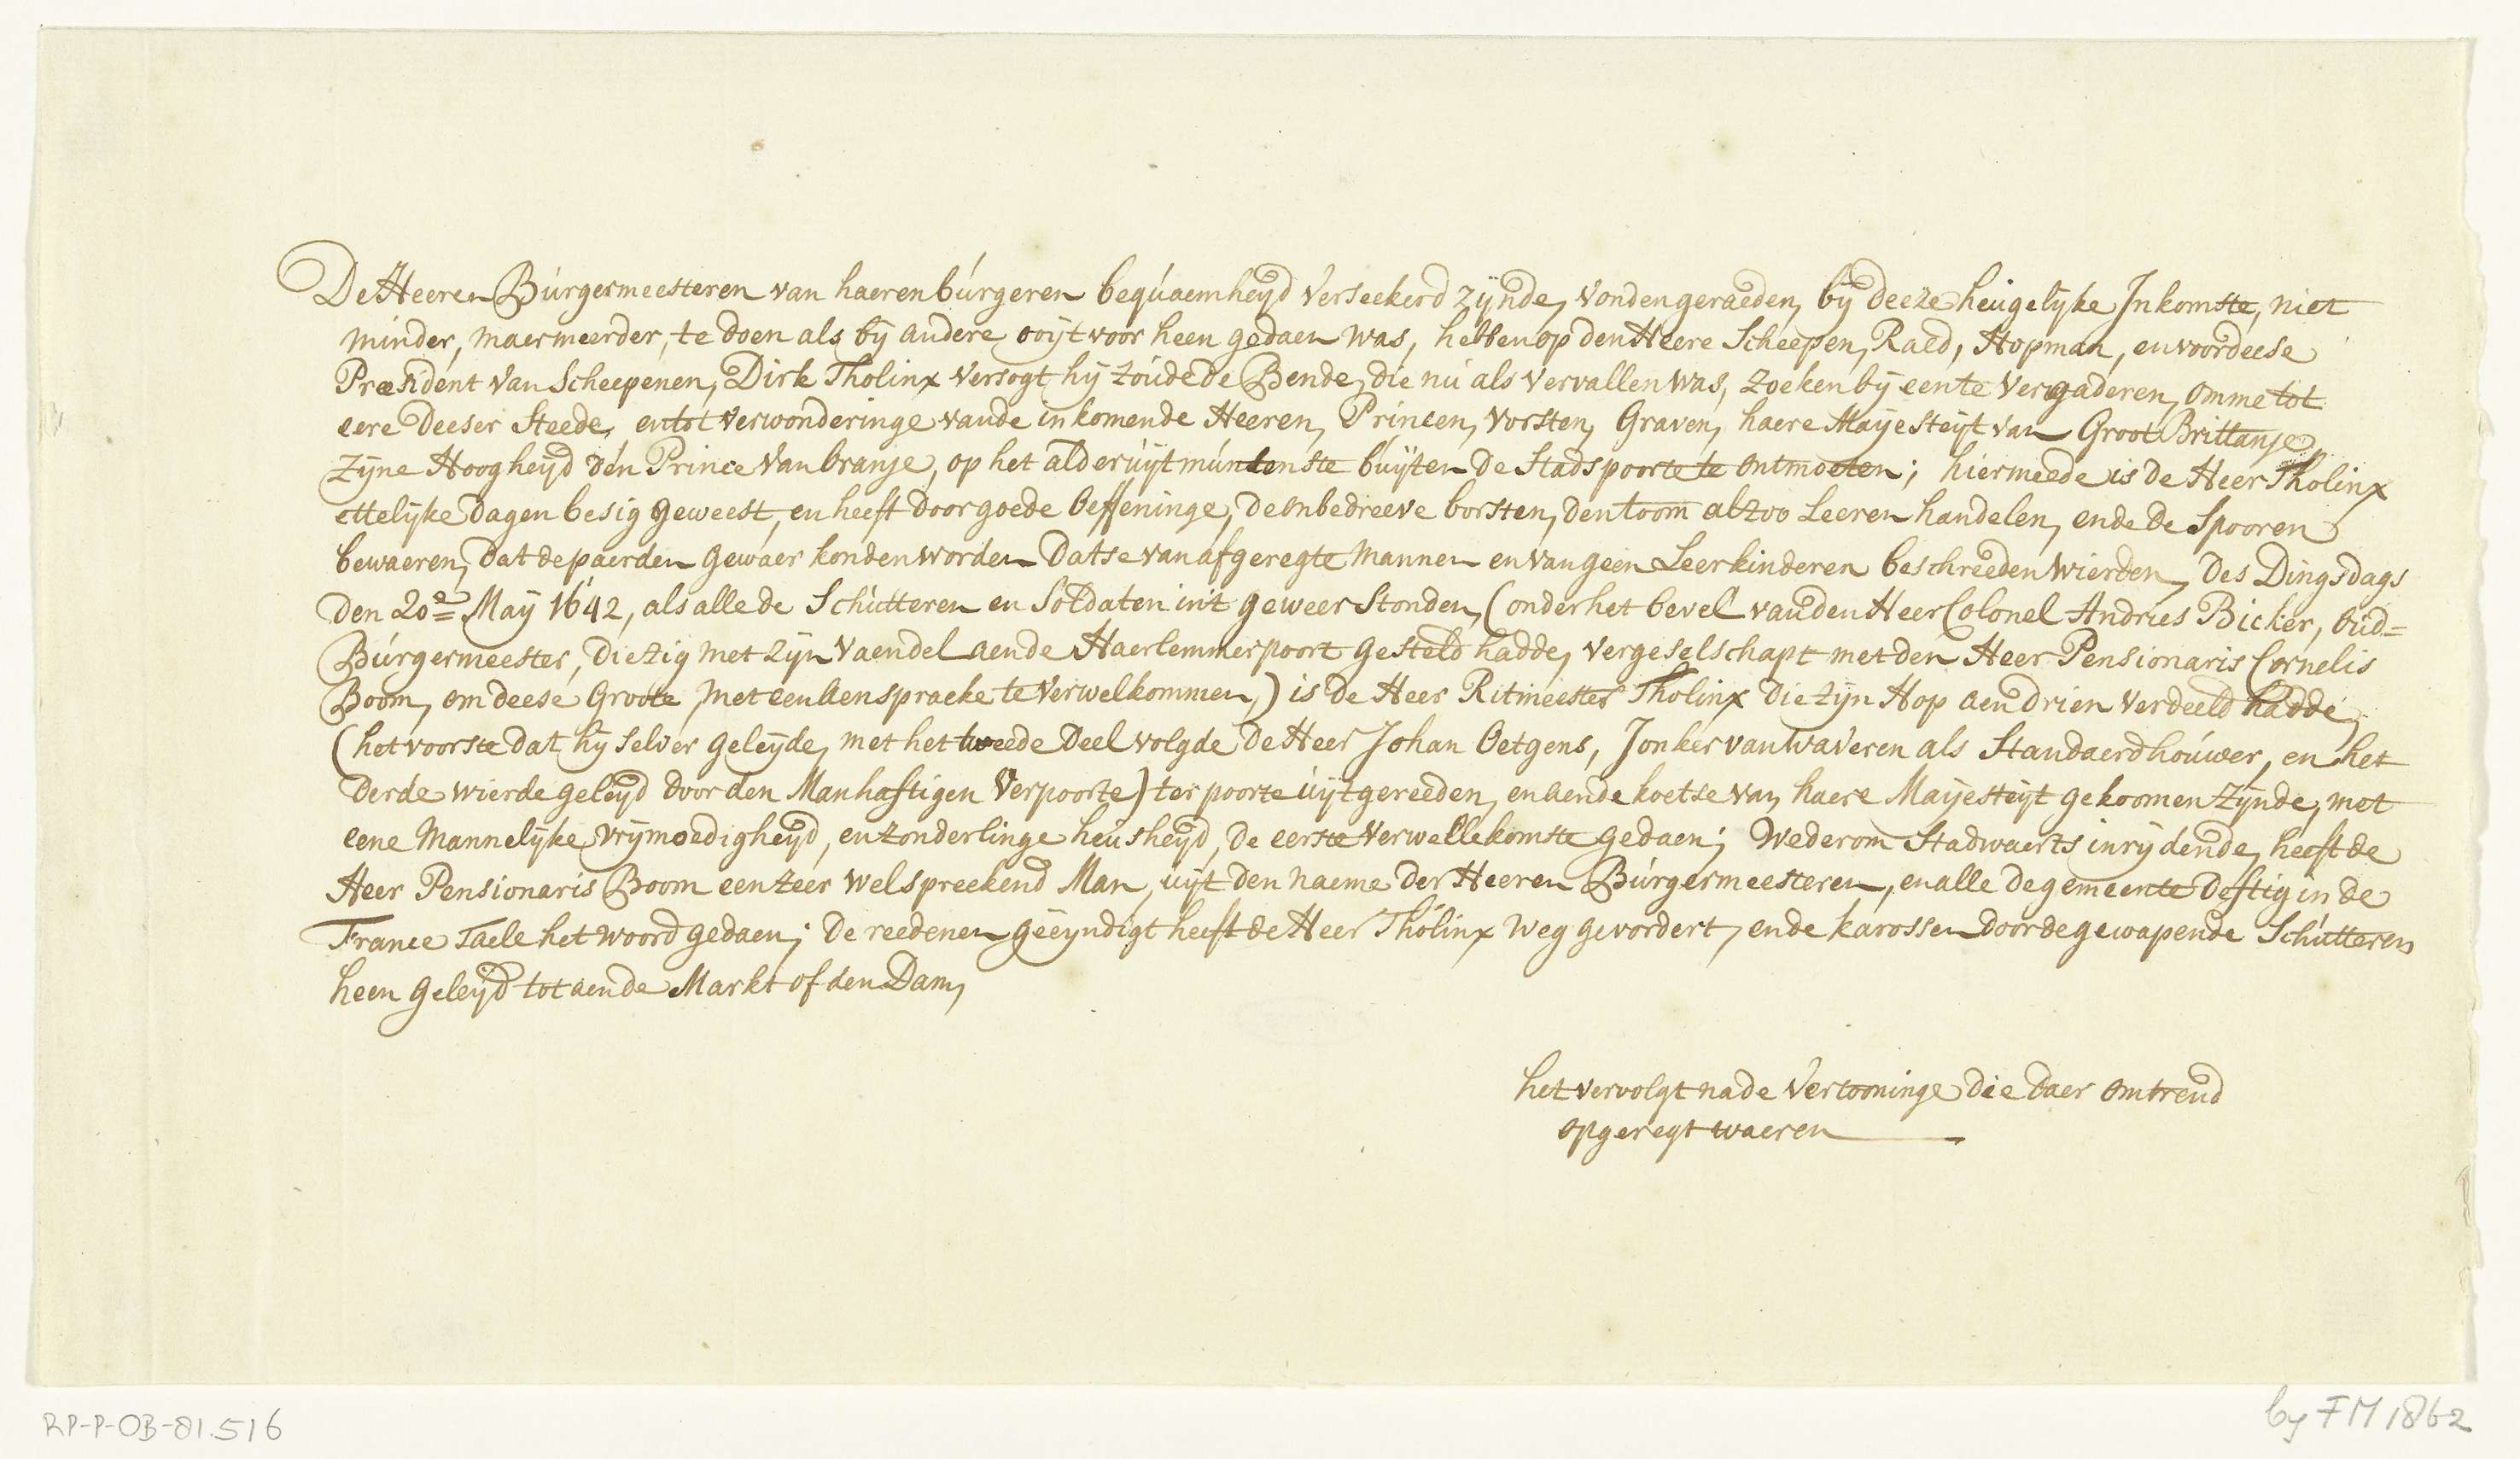 De Heeren Búrgermeesteren van haeren búrgeren beqúaemheyd verseekerd zÿnde, vonden geraeden, bÿ deeze heúgelyke Inkomste, niet
minder, maer meerder, te doen als bÿ andere ooÿt voor heen gedaen was, hebben op den Heere Scheepen, Raed, Hopman, en voor deese
Præsident van Scheepenen, Dirk Tholinx versogt, hÿ zoúde de Bende, die nú als vervallen was, zoeken bÿ een te vergaderen, omme tot
eere deeser Steede, en tot verwonderinge van de inkomende Heeren, Princen, vorsten, Graven, haere Mayesteÿt van Groot Brittanje,
zyne Hoogheÿd den Prince van Oranje, op het alderúÿtmúntenste búÿten de Stadspoorte te ontmoeten; hiermeede is de Heer Tholinx
ettelyke dagen besig geweest, en heeft door goede Oeffeninge, de onbedreeve borsten, den toom alzoo Leeren handelen, ende de Spooren
bewaeren, dat de paerden gewaer konden worden datse van afgeregte mannen en van geen Leerkinderen beschreeden wierden, des Dingsdags
den 20e= Maÿ 1642, als alle de Schútteren en Soldaten in't geweer Stonden, (onder het bevel van den Heer Colonel Andries Bicker, Oúd=
Búrgermeester, die zig met zÿn vaendel aen de Haerlemmerpoort gesteld hadde, vergeselschapt met den Heer Pensionaris Cornelis
Boom, om deese Groote, met een Aenspraeke te verwelkommen,) is de Heer Ritmeester Tholinx die zÿn Hop aen drien verdeeld hadde,
(het voorste dat hÿ selver geleÿde, met het tweede deel volgde de Heer Johan Oetgens, Jonker van Waveren als Standaerdhoúwer, en het
derde wierde geleÿd door den Manhaftigen Verpoorte) ter poorte úÿtgereeden, en aen de koetse van haere Maÿesteÿt gekoomen zÿnde, met
eene Mannelÿke vrÿmoedigheÿd, en zonderlinge heúsheÿd, de eerste verwellekomste gedaen; Wederom Stadwaerts inrÿdende, heeft de
Heer Pensionaris Boom een zeer welspreekend Man, úÿt den naeme der Heeren Búrgermeesteren, en alle de gemeente deftig in de
France Taele het woord gedaen; De reedenen geëyndigt heeft de Heer Tholinx weg gevordert, en de karossen door de gewapende Schútteren
heen geleÿd tot aen de Markt of den Dam,
het vervolgt na de Vertooninge die daer omtrend
opgeregt waeren
RP-P-OB-81.516
by FM 1862